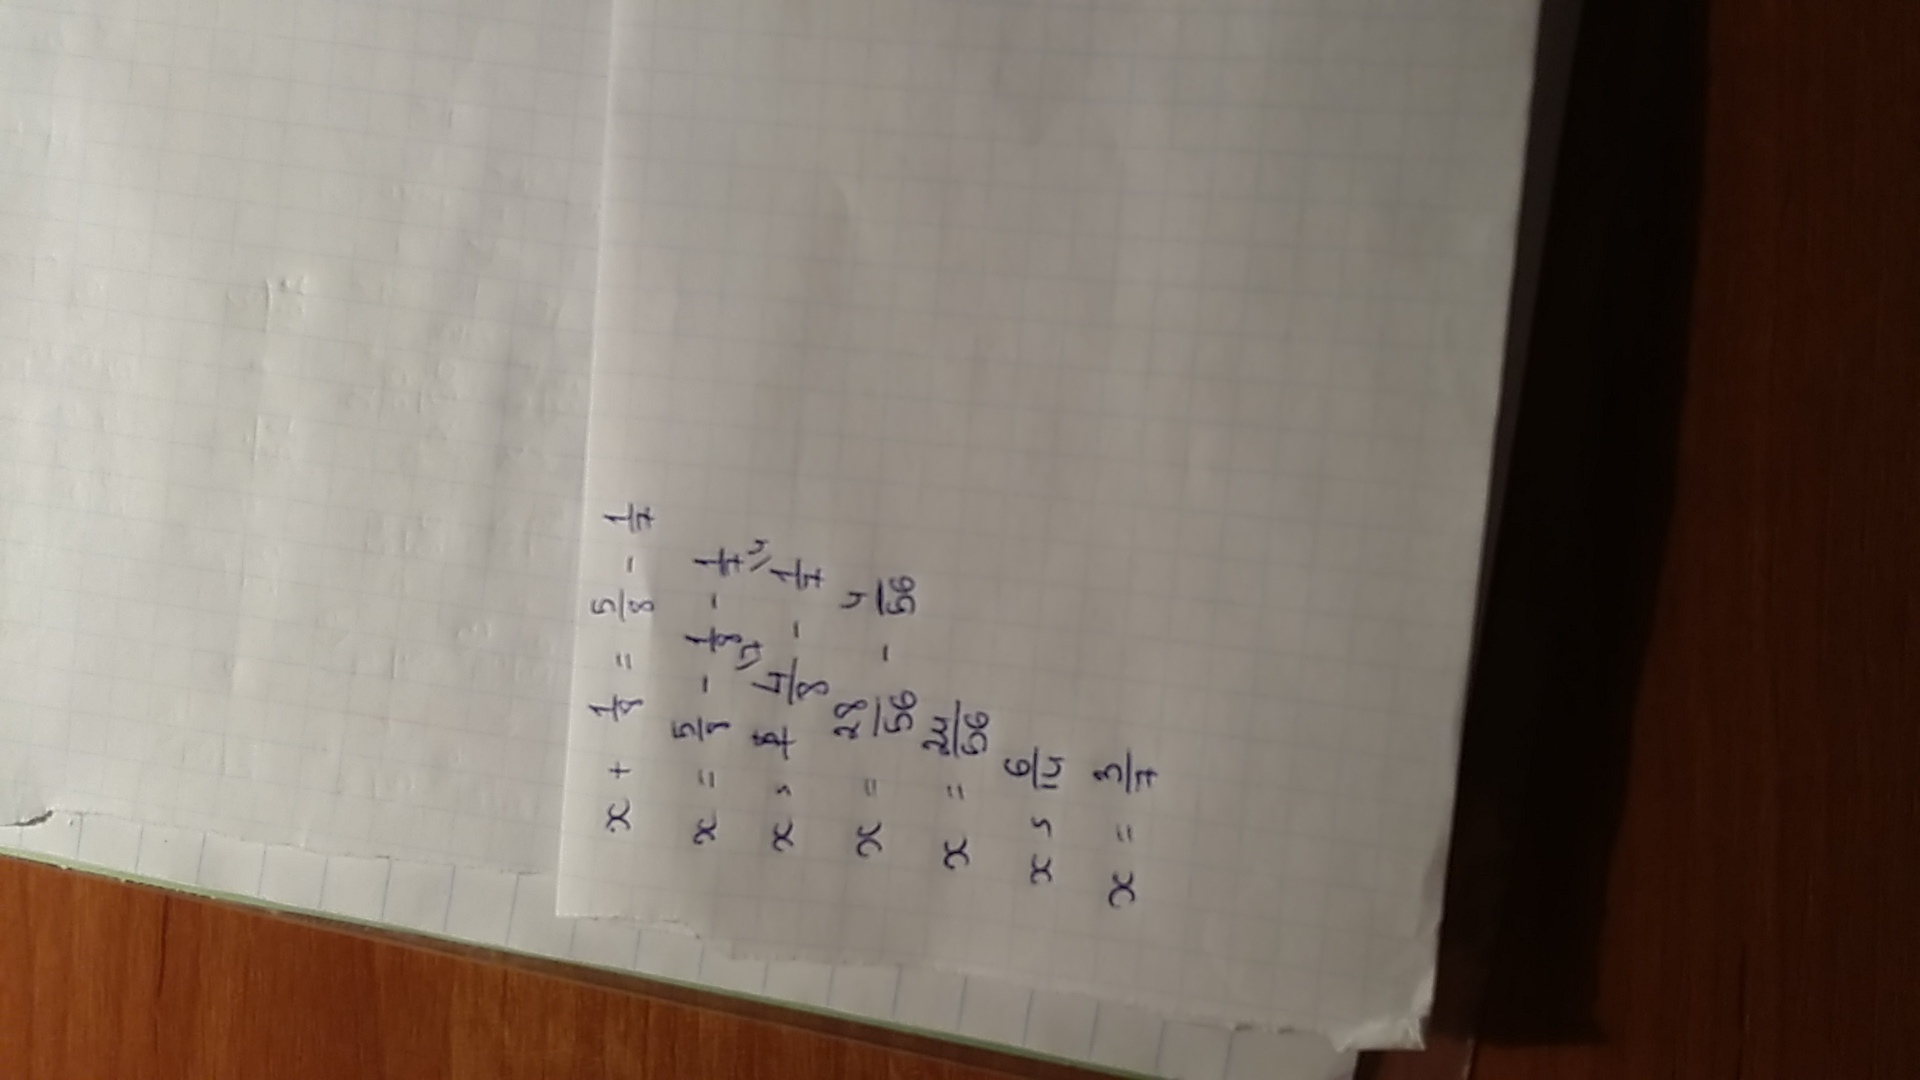 x + 1/8 = 5/8 - 1/7
x = 5/8 - 1/8 - 1/7
x = 4/8 \7 - 1/7 \4
x = 28/56 - 4/56
x = 24/56
x = 6/14
x = 3/7